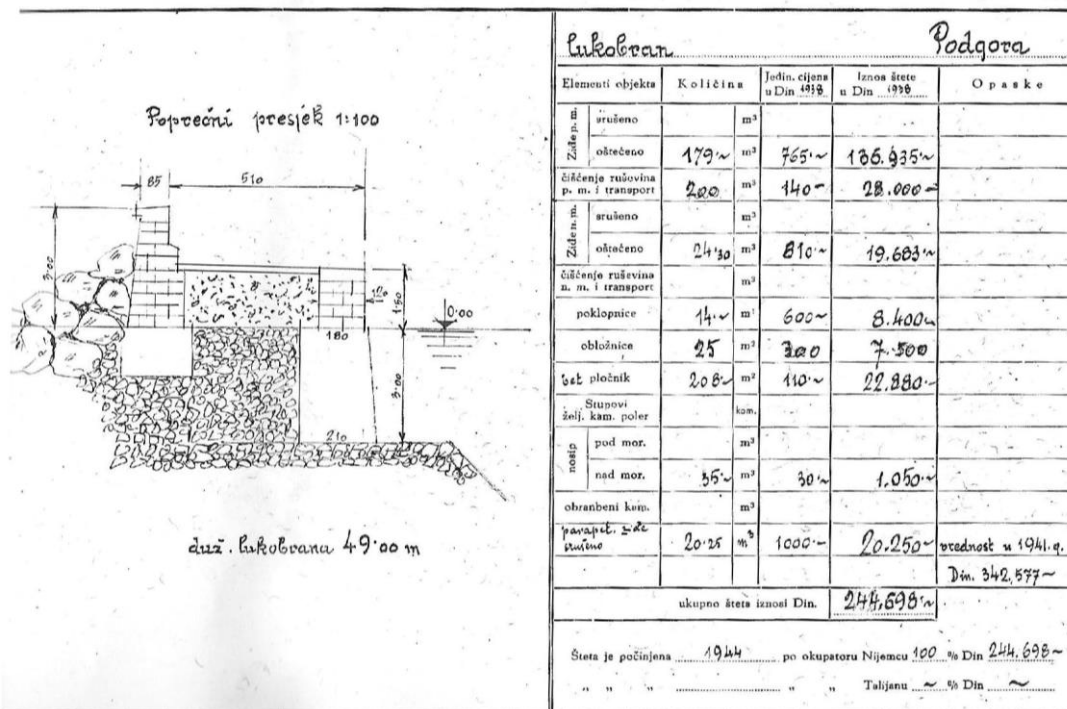 Poprečni presjek 1:100
85
510
3·00
1·50
0·00
180
3·00
210
duž. lukobrana 49·00 m
lukobran Podgora
Elementi objekta Količina Jedin. cijena u Din 1938 Iznos štete u Din 1938 Opaske
Ziđe p. m. srušeno m³
oštećeno 179·~ m³ 765·~ 136.935·~
čišćenje rušovina p. m. i transport 200 m³ 140~ 28.000~
Ziđe n. m. srušeno m³
oštećeno 24·30 m³ 810·~ 19.683·~
čišćenje ruševina n. m. i transport m³
poklopnice 14·~ m¹ 600~ 8.400~
obložnice 25 m² 300 7.500
bet pločnik 208~ m² 110·~ 22.880·~
Stupovi želj. kam. poler kom.
nasip pod mor. m³
nad mor. 35·~ m³ 30·~ 1.050·~
obranbeni kam. m³
parapet. ziđe srušeno 20·25 m³ 1000·~ 20.250~ vrednost u 1941.g.
Din. 342,577~
ukupno šteta iznosi Din. 244,698·~
Šteta je počinjena 1944 po okupatoru Nijemcu 100 % Din 244.698~
„ „ „ „ „ Talijanu ~ % Din ~